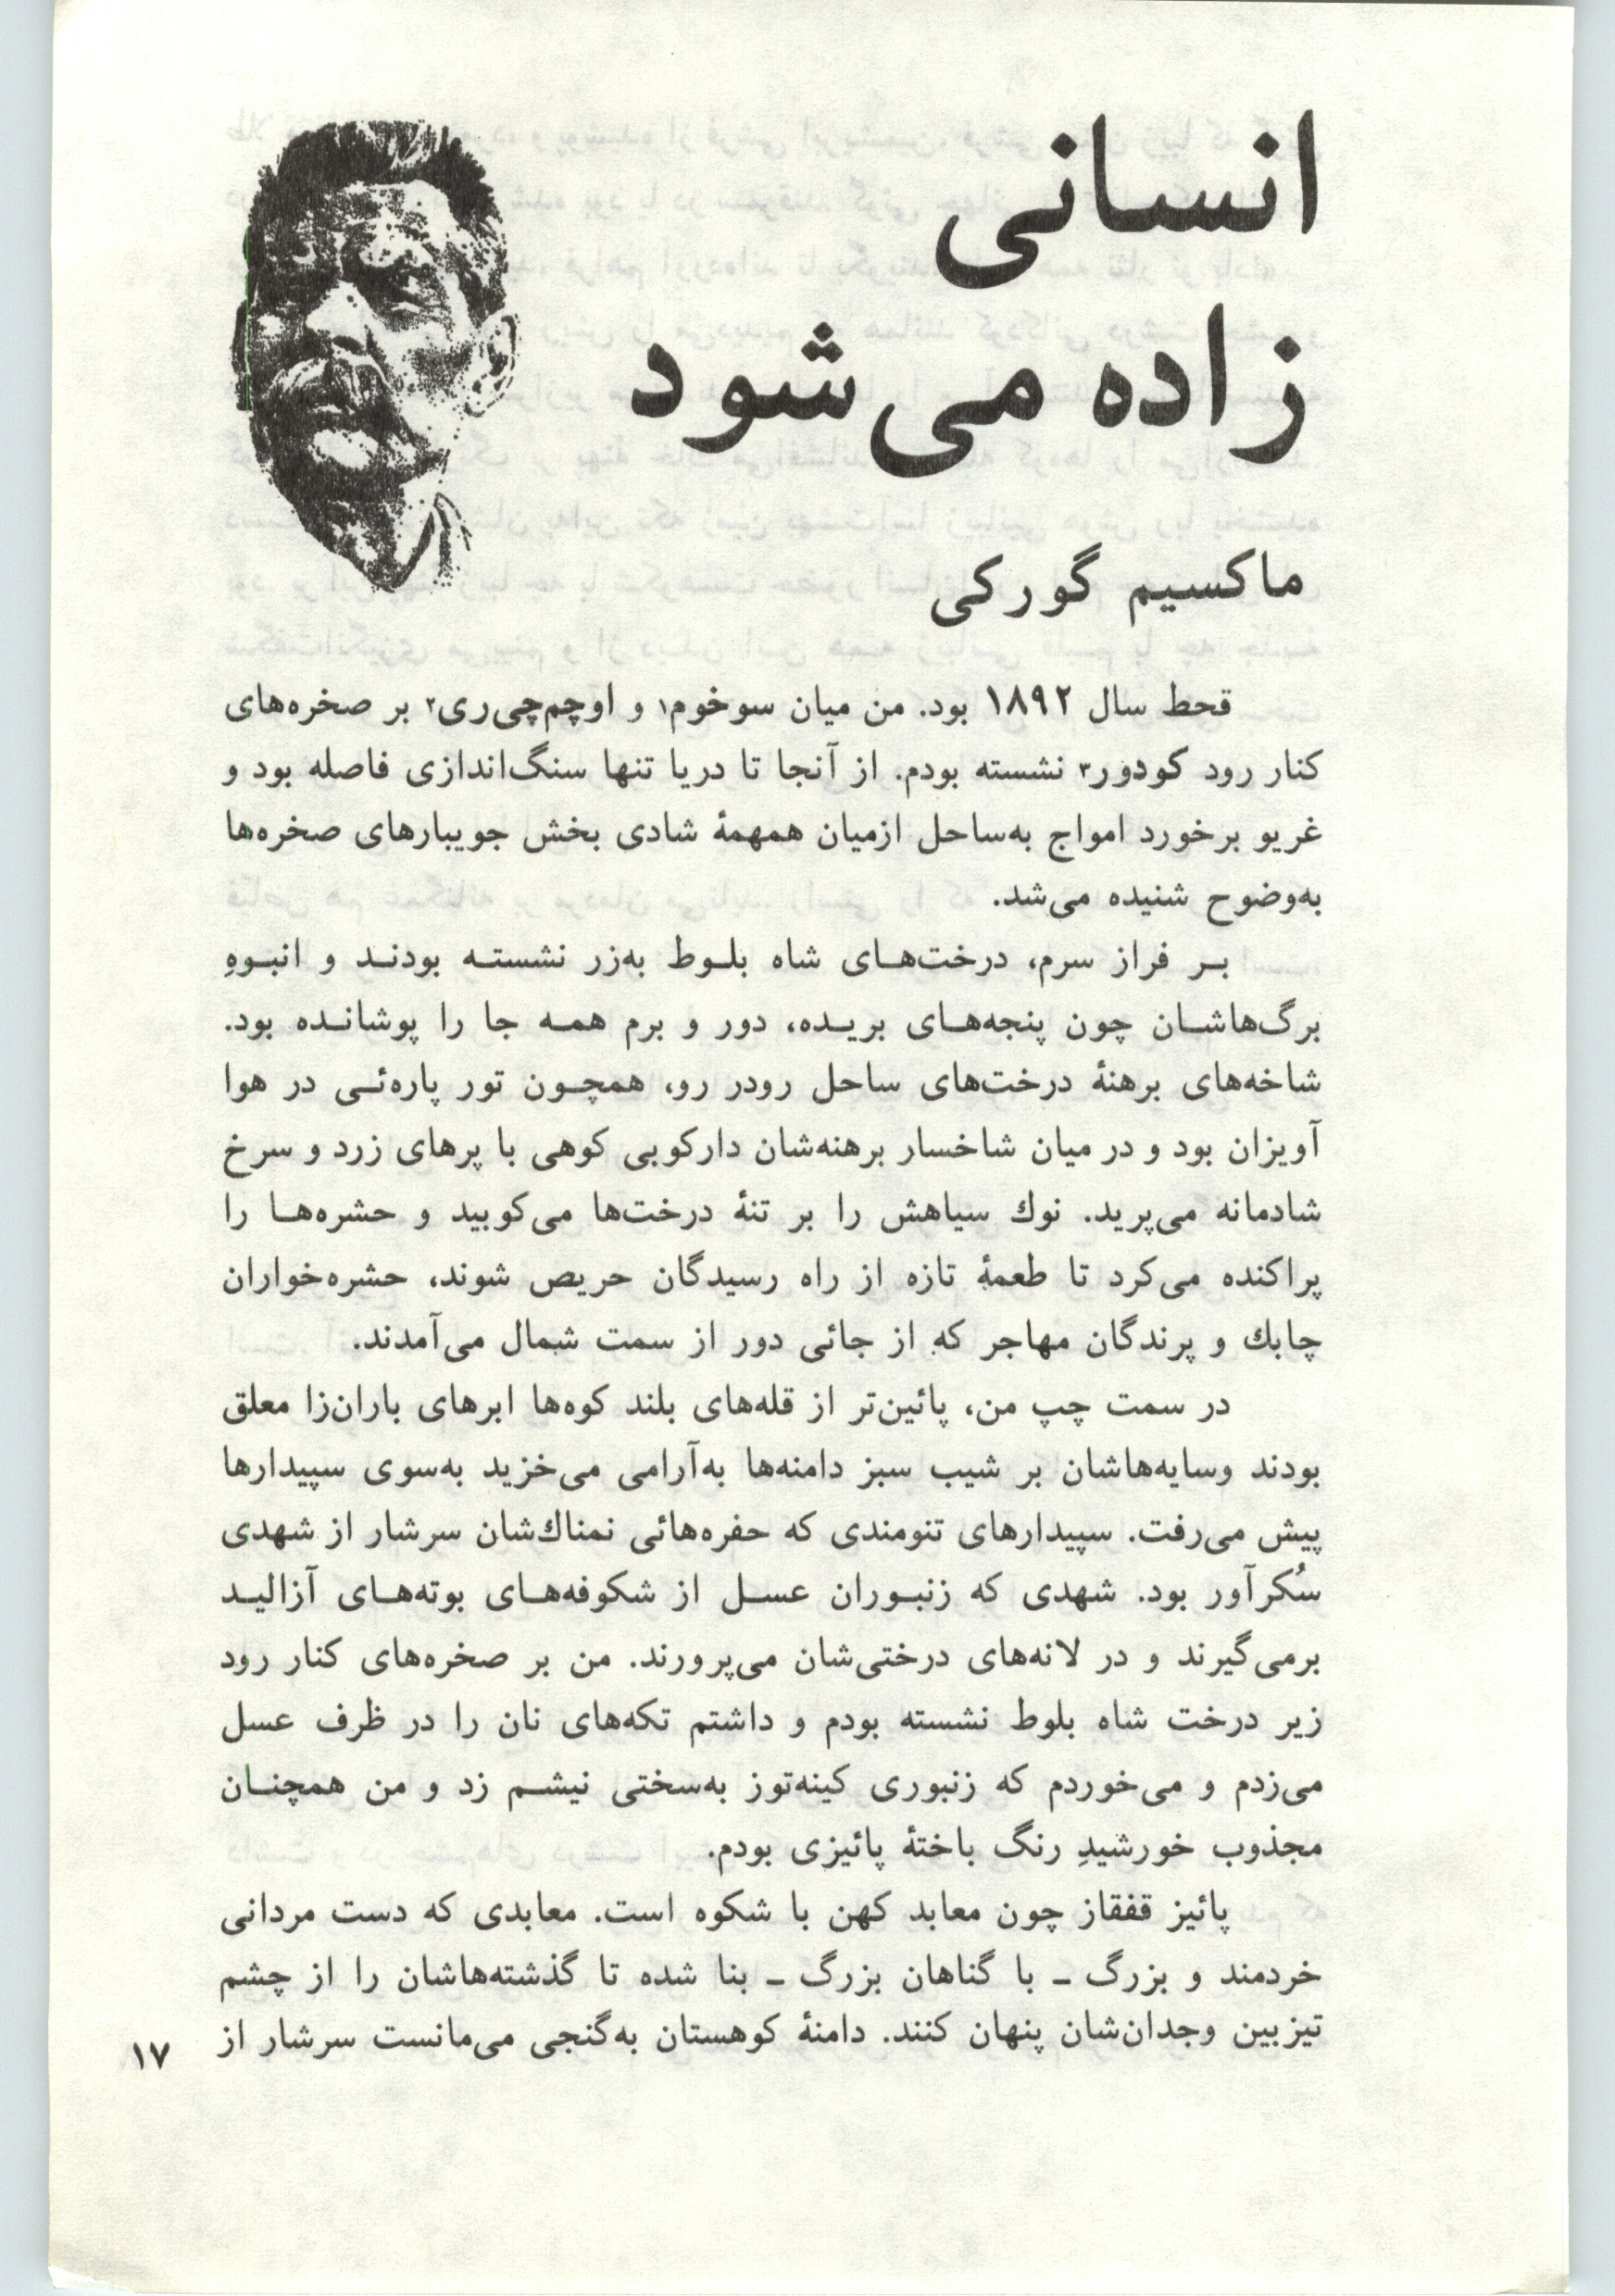 انسانی
زاده می‌شود
ماکسیم گورکی
قحط سال ۱۸۹۲ بود. من میان سوخوم۱ و اوچم‌چی‌ری۲ بر صخره‌های
کنار رود کودور۳ نشسته بودم. از آنجا تا دریا تنها سنگ‌اندازی فاصله بود و
غریو برخورد امواج به‌ساحل ازمیان همهمهٔ شادی بخش جویبارهای صخره‌ها
به‌وضوح شنیده می‌شد.
بر فراز سرم، درخت‌های شاه بلوط به‌زر نشسته بودند و انبوهِ
برگ‌هاشان چون پنجه‌های بریده، دور و برم همه جا را پوشانده بود.
شاخه‌های برهنهٔ درخت‌های ساحل رودر رو، همچون تور پاره‌ئی در هوا
آویزان بود و در میان شاخسار برهنه‌شان دارکوبی کوهی با پرهای زرد و سرخ
شادمانه می‌پرید. نوك سیاهش را بر تنهٔ درخت‌ها می‌کوبید و حشره‌ها را
پراکنده می‌کرد تا طعمهٔ تازه از راه رسیدگان حریص شوند، حشره‌خواران
چابك و پرندگان مهاجر که از جائی دور از سمت شمال می‌آمدند.
در سمت چپ من، پائین‌تر از قله‌های بلند کوه‌ها ابرهای باران‌زا معلق
بودند وسایه‌هاشان بر شیب سبز دامنه‌ها به‌آرامی می‌خزید به‌سوی سپیدارها
پیش می‌رفت. سپیدارهای تنومندی که حفره‌هائی نمناك‌شان سرشار از شهدی
سُکرآور بود. شهدی که زنبوران عسل از شکوفه‌های بوته‌های آزالید
برمی‌گیرند و در لانه‌های درختی‌شان می‌پرورند. من بر صخره‌های کنار رود
زیر درخت شاه بلوط نشسته بودم و داشتم تکه‌های نان را در ظرف عسل
می‌زدم و می‌خوردم که زنبوری کینه‌توز به‌سختی نیشم زد و من همچنان
مجذوب خورشیدِ رنگ باختهٔ پائیزی بودم.
پائیز قفقاز چون معابد کهن با شکوه است. معابدی که دست مردانی
خردمند و بزرگ ـ با گناهان بزرگ ـ بنا شده تا گذشته‌هاشان را از چشم
تیزبین وجدان‌شان پنهان کنند. دامنهٔ کوهستان به‌گنجی می‌مانست سرشار از
۱۷